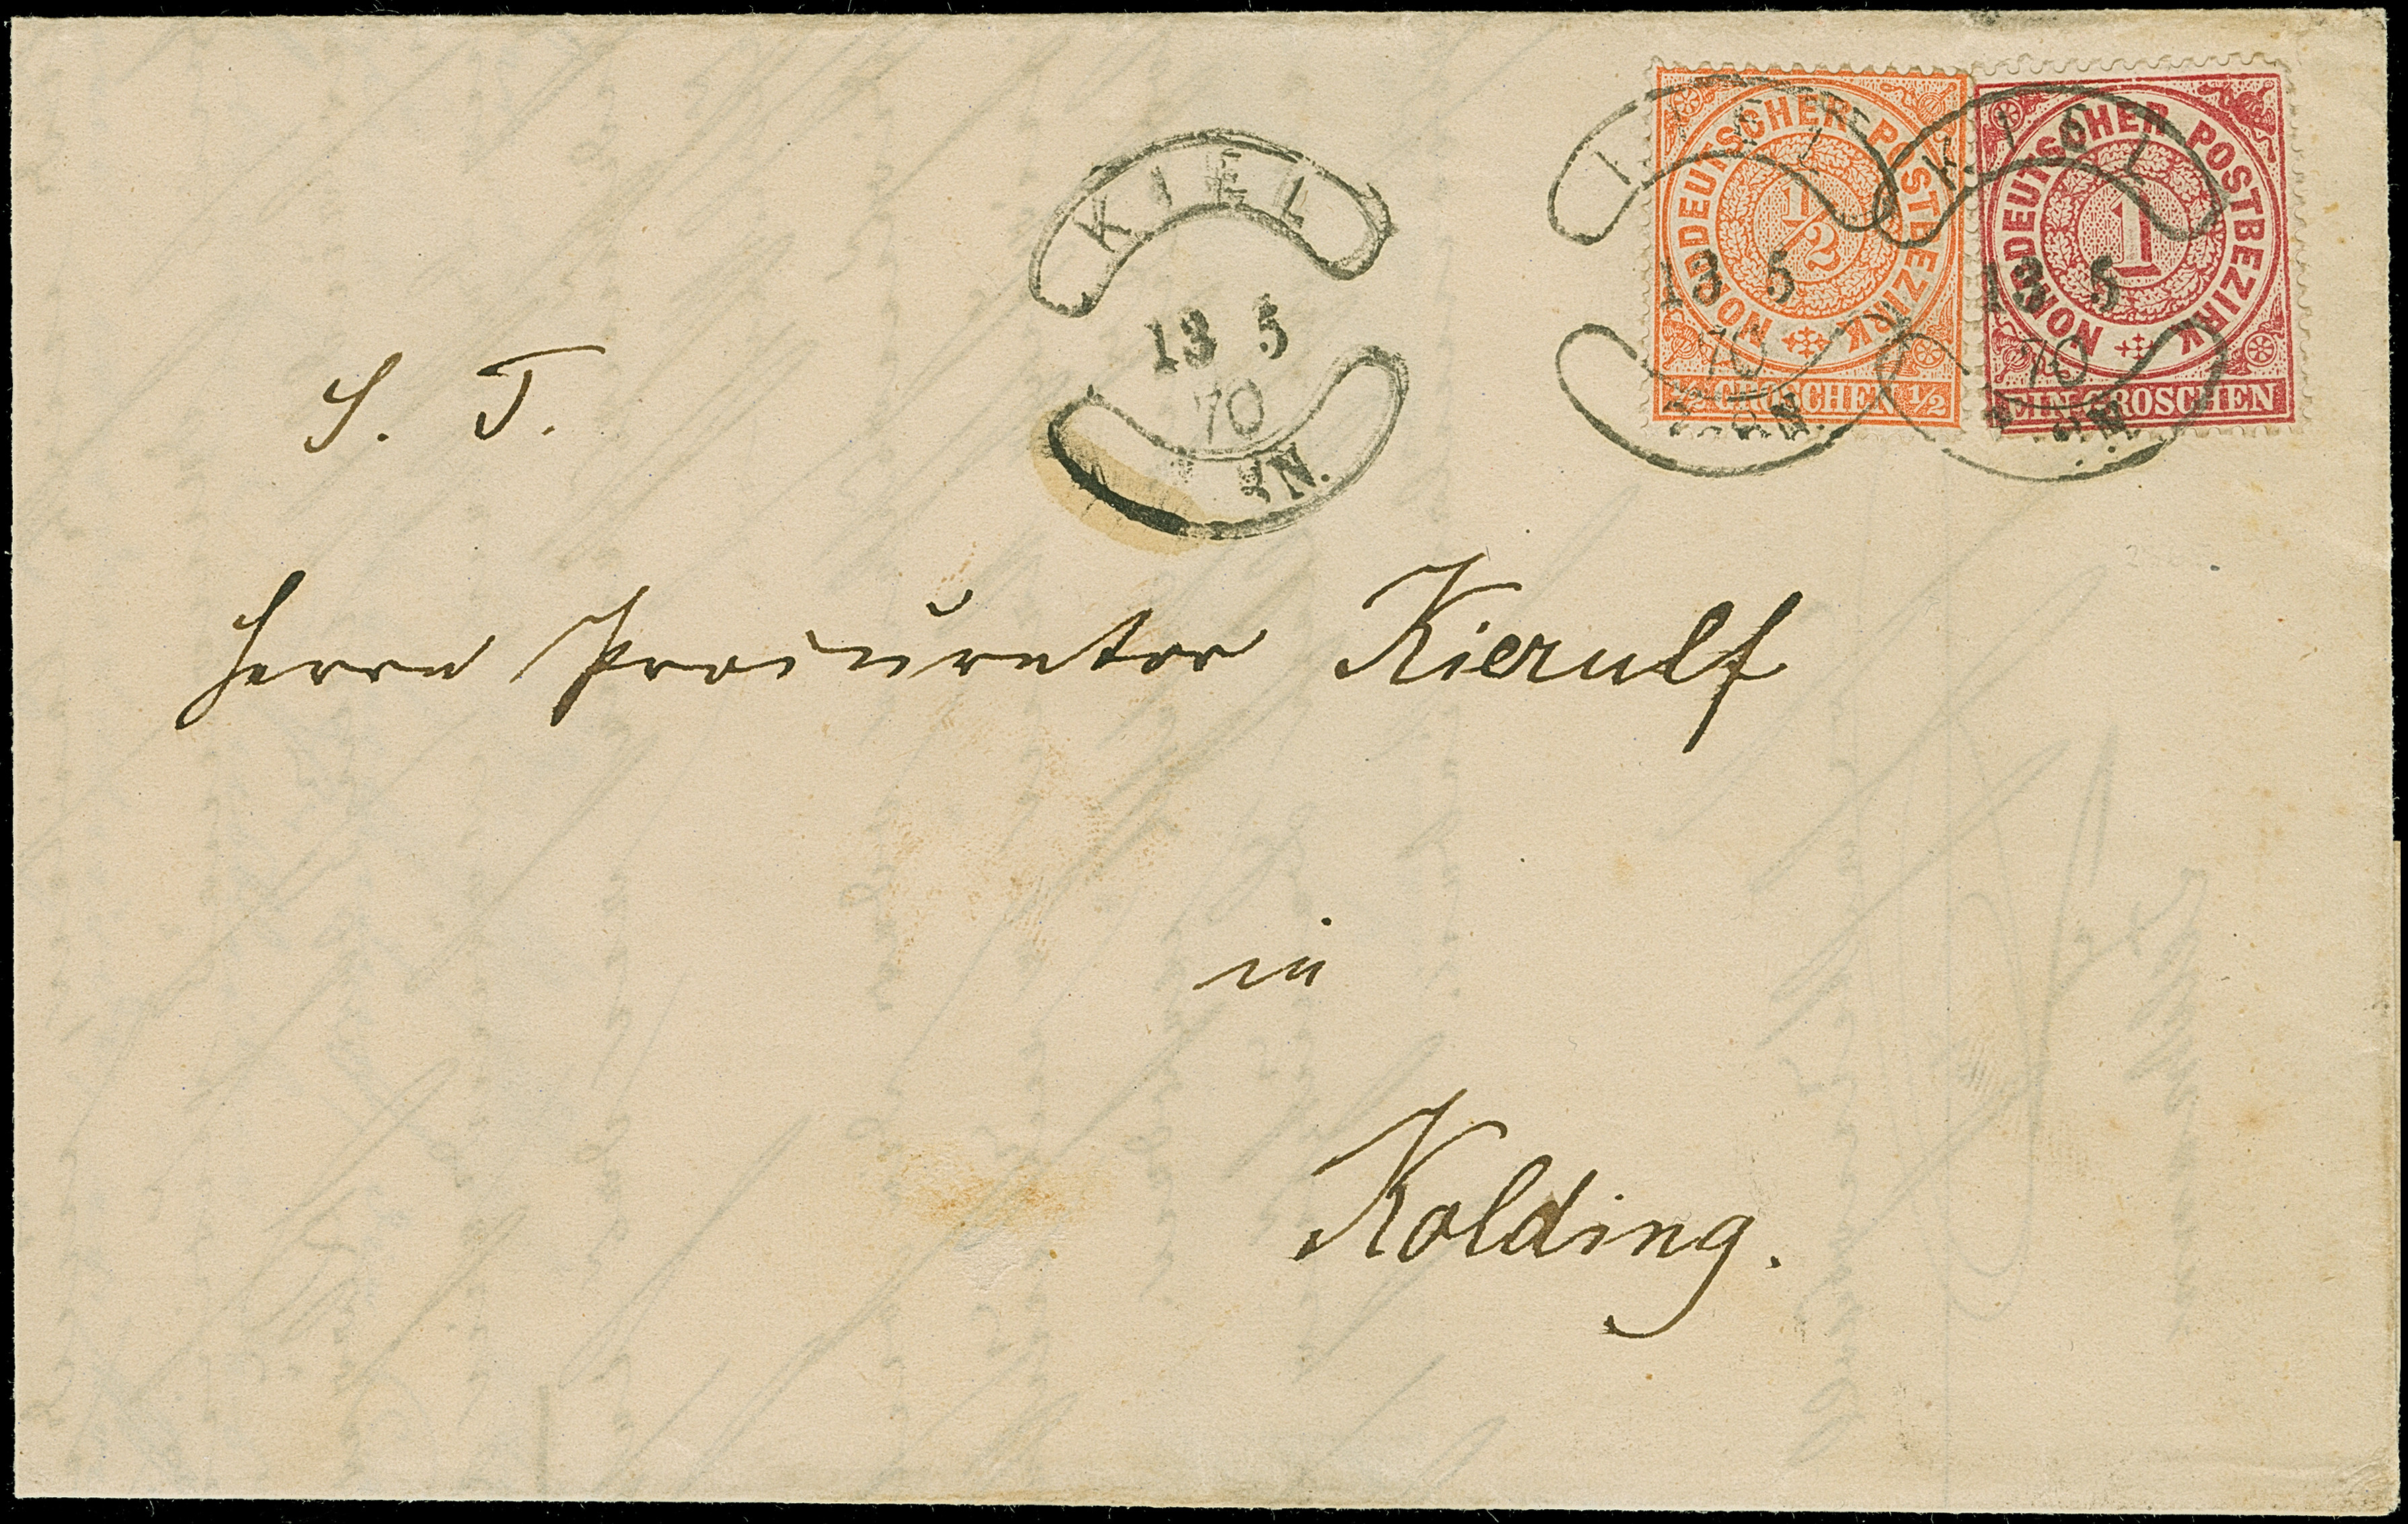 KIEL
13 5
70
N.
NORDDEUTSCHER POSTBEZIRK
1/2
1/2 GROSCHEN 1/2
13 5
70
N.
KIEL
NORDDEUTSCHER POSTBEZIRK
1
EIN GROSCHEN
13 5
70
N.
S. T.
Herrn Procurator Kierulf
in
Kolding.